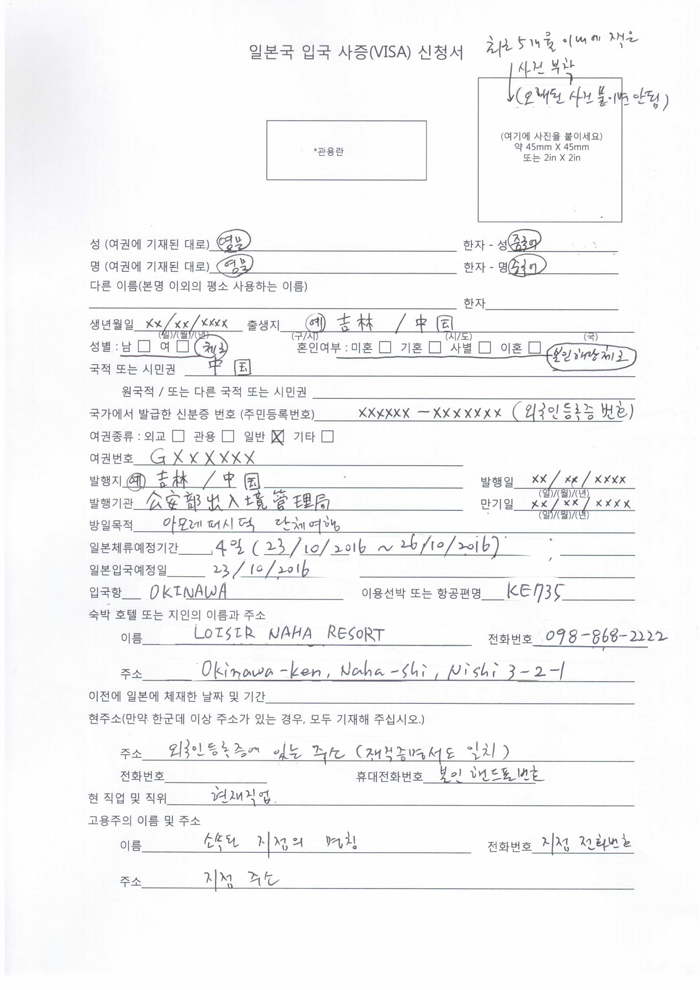 일본국 입국 사증(VISA) 신청서
최근 5개월 이내에 찍은
사진 부착
(오래된 사진 붙이면 안됨)
*관용란
(여기에 사진을 붙이세요)
약 45mm X 45mm
또는 2in X 2in
성 (여권에 기재된 대로) 영문 한자 - 성 중국어
명 (여권에 기재된 대로) 영문 한자 - 명 중국어
다른 이름(본명 이외의 평소 사용하는 이름)
한자
생년월일 xx/xx/xxxx 출생지 예 吉林 / 中国
(일)/(월)/(년) (구/시) (시/도) (국)
성별 : 남 □ 여 □ 체크 혼인여부 : 미혼 □ 기혼 □ 사별 □ 이혼 □ 본인해당체크
국적 또는 시민권 中国
원국적 / 또는 다른 국적 또는 시민권
국가에서 발급한 신분증 번호 (주민등록번호) xxxxxx - xxxxxxx (외국인등록증 번호)
여권종류 : 외교 □ 관용 □ 일반 ☒ 기타 □
여권번호 GXXXXXX
발행지 예 吉林 / 中国 발행일 xx/xx/xxxx
(일)/(월)/(년)
발행기관 公安部出入境管理局 만기일 xx/xx/xxxx
(일)/(월)/(년)
방일목적 아모레퍼시픽 단체여행
일본체류예정기간 4일 (23/10/2016 ~ 26/10/2016)
일본입국예정일 23/10/2016
입국항 OKINAWA 이용선박 또는 항공편명 KE735
숙박 호텔 또는 지인의 이름과 주소
이름 LOISIR NAHA RESORT 전화번호 098-868-2222
주소 Okinawa-ken, Naha-shi, Nishi 3-2-1
이전에 일본에 체재한 날짜 및 기간
현주소(만약 한군데 이상 주소가 있는 경우, 모두 기재해 주십시오.)
주소 외국인등록증에 있는 주소 (재직증명서도 일치)
전화번호 휴대전화번호 본인 핸드폰번호
현 직업 및 직위 현재직업
고용주의 이름 및 주소
이름 소속된 지점의 명칭 전화번호 지점 전화번호
주소 지점 주소